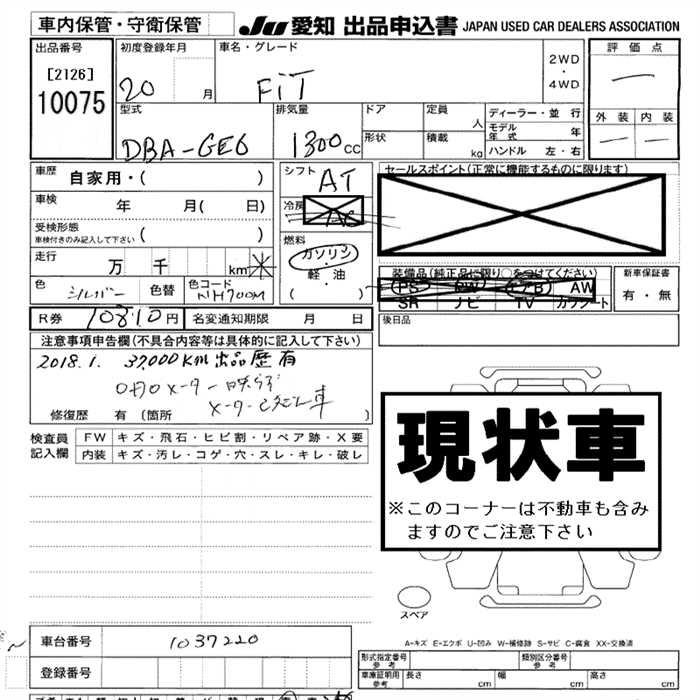 車内保管・守衛保管
JU 愛知 出品申込書 JAPAN USED CAR DEALERS ASSOCIATION
出品番号 初度登録年月 車名・グレード 評価点
[2126]
10075
20 月 FiT 2WD・4WD
外装 内装
型式 排気量 ドア 定員 人 ディーラー・並行
モデル年式 年
DBA-GE6 1300cc 形状 積載 kg ハンドル 左・右
車歴 自家用・( ) シフト AT セールスポイント(正常に機能するものに限ります)
車検 年 月( 日) 冷房 AC
受検形態 ( )
車検付きのみ記入して下さい
燃料 ガソリン・軽・油 ( )
走行 万 千 km ※
装備品(純正品に限り○をつけてください) 新車保証書
PS PW エアB AW
SR ナビ TV カワシート 有・無
色 シルバー 色替 色コード NH700M
R券 10810円 名変通知期限 月 日 後日品
注意事項申告欄(不具合内容等は具体的に記入して下さい)
2018.1. 37,000Km出品歴有
ODOメーター
修復歴 有(箇所
現状車
※このコーナーは不動車も含み
ますのでご注意下さい
検査員記入欄 FW キズ・飛石・ヒビ割・リペア跡・X要
内装 キズ・汚レ・コゲ・穴・スレ・キレ・破レ
スペア
A-キズ E-エクボ U-凹み W-補修跡 S-サビ C-腐食 XX-交換済
車台番号 1037220
登録番号
形式指定番号 参考 類別区分番号 参考
車庫証明用 参考 長さ cm 幅 cm 高さ cm